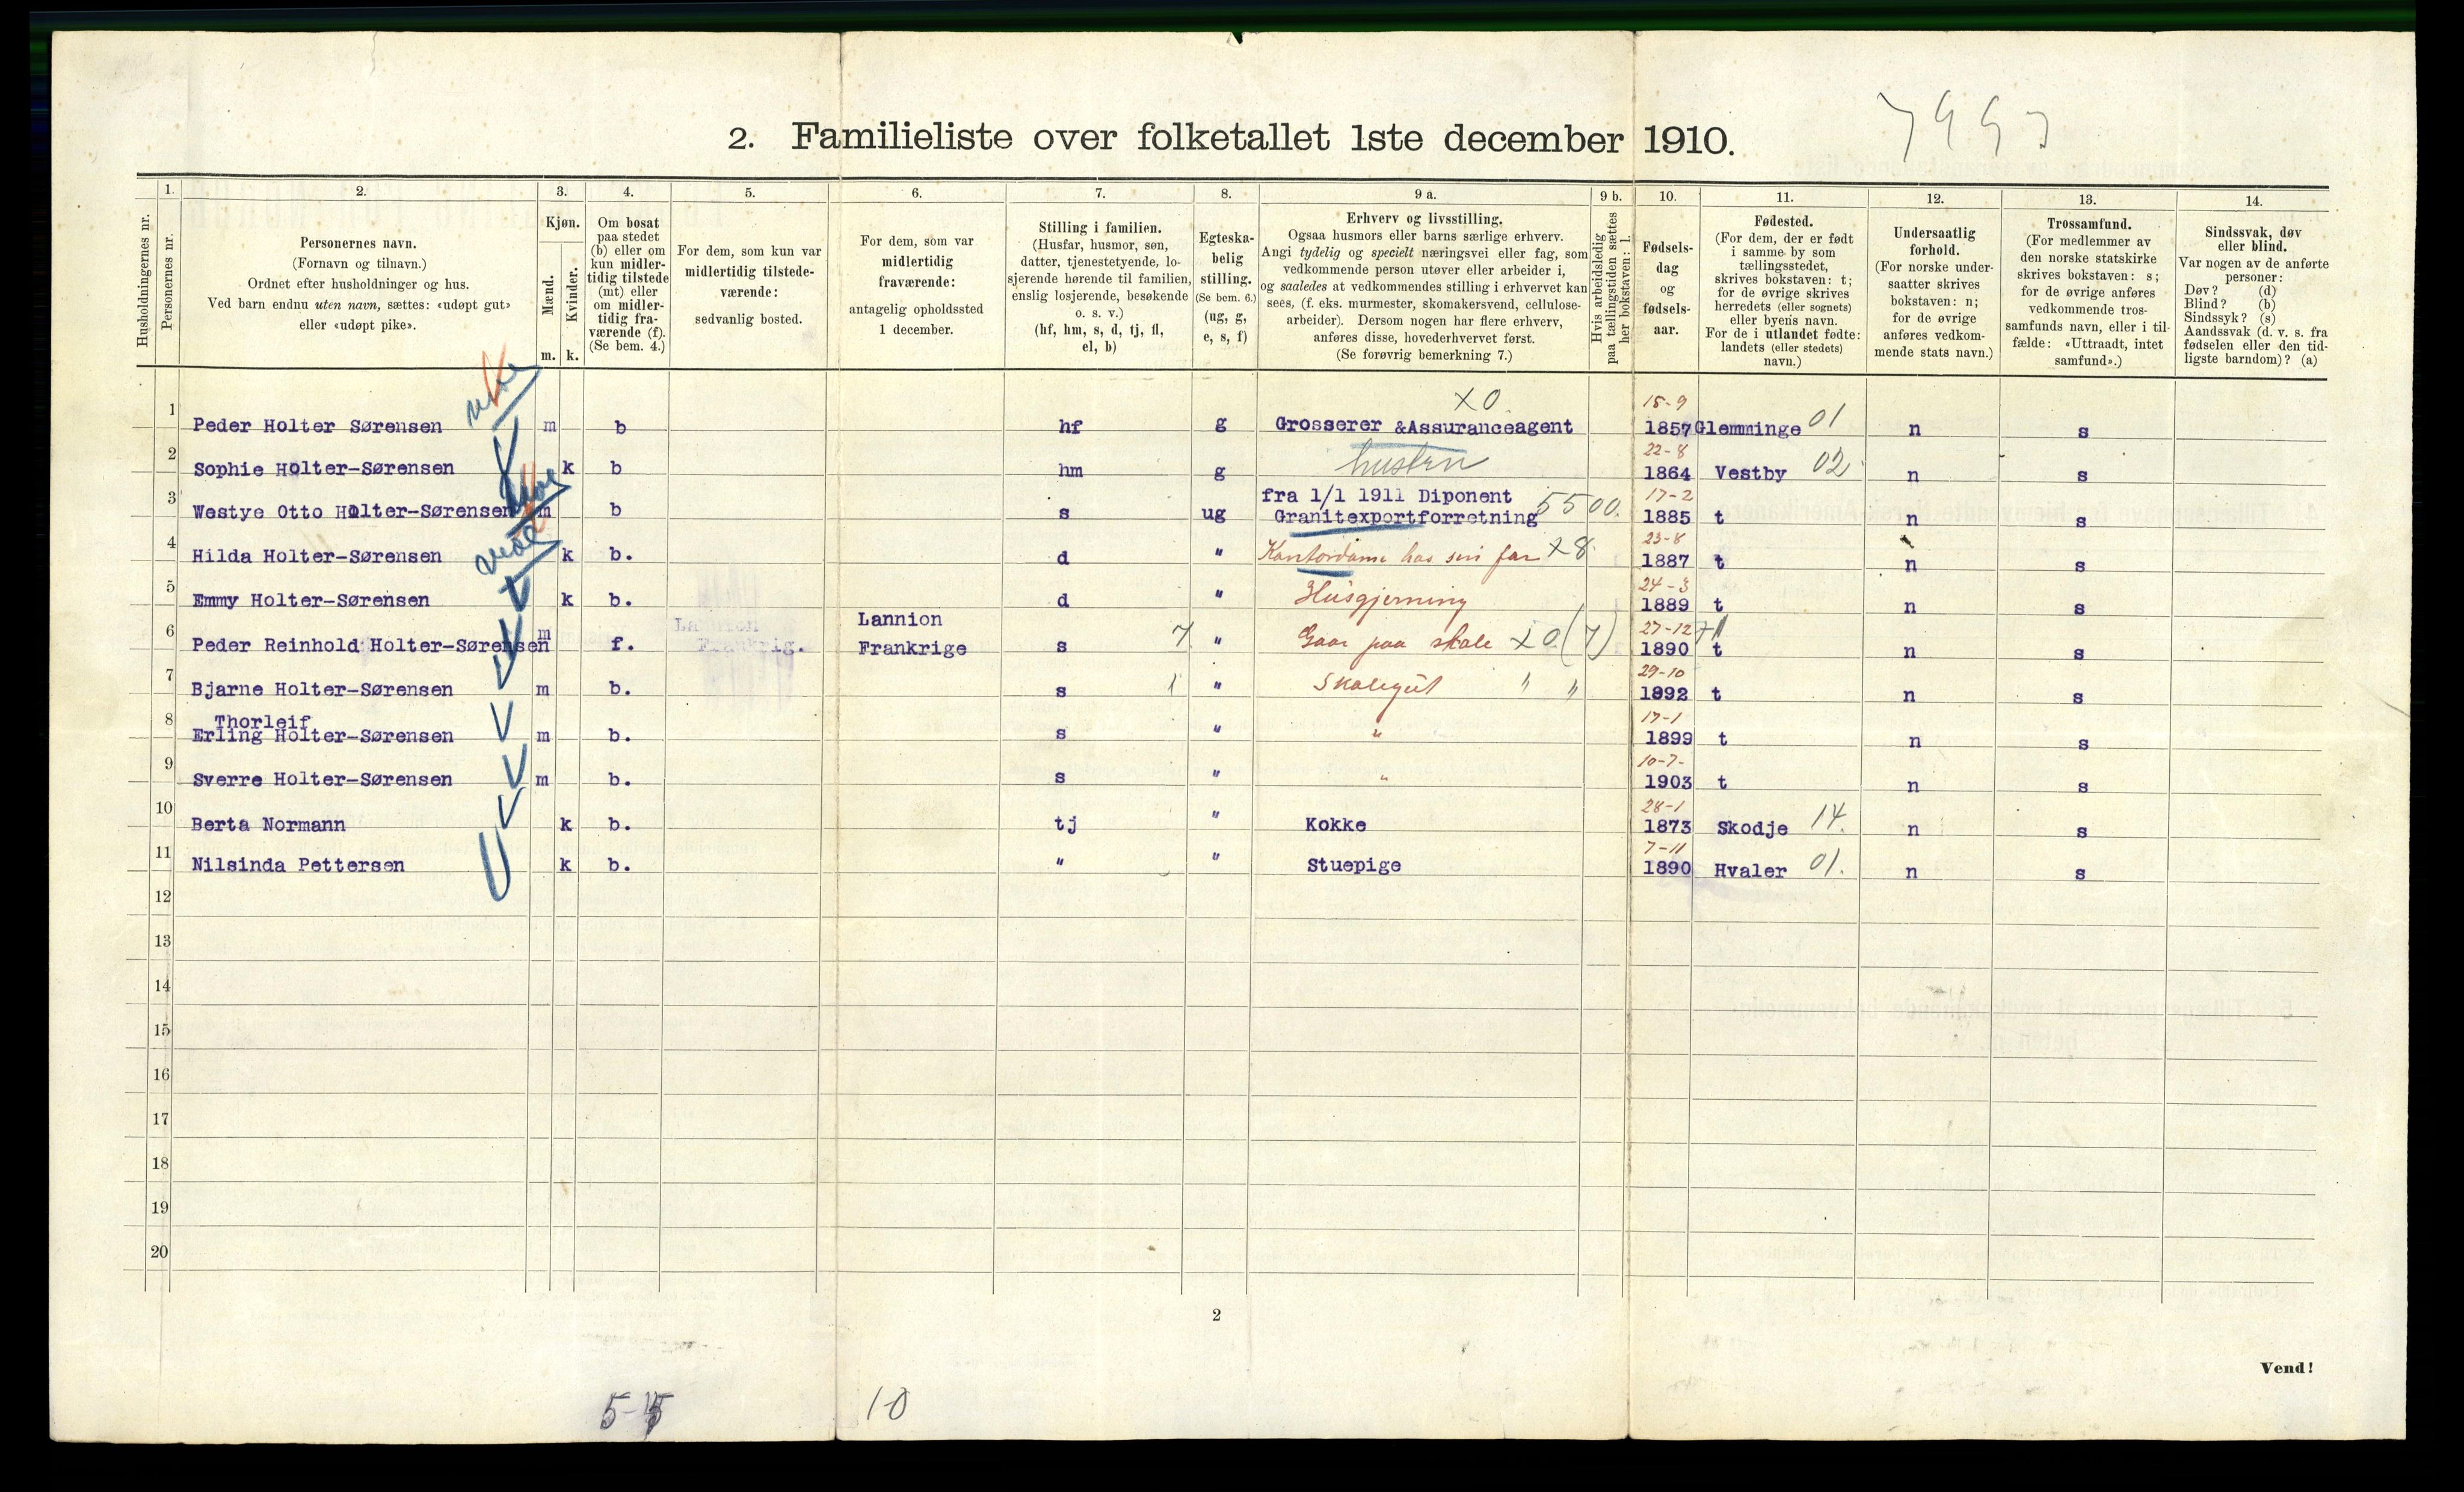 7997
2. Familieliste over folketallet 1ste december 1910.
Husholdningernes nr.
1. Personernes nr.
2. Personernes navn. (Fornavn og tilnavn.) Ordnet efter husholdninger og hus. Ved barn endnu uten navn, sættes: «udøpt gut» eller «udøpt pike».
3. Kjøn. Mænd. m. Kvinder. k.
4. Om bosat paa stedet (b) eller om kun midlertidig tilstede (mt) eller om midlertidig fraværende (f). (Se bem. 4.)
5. For dem, som kun var midlertidig tilstedeværende: sedvanlig bosted.
6. For dem, som var midlertidig fraværende: antagelig opholdssted 1 december.
7. Stilling i familien. (Husfar, husmor, søn, datter, tjenestetyende, losjerende hørende til familien, enslig losjerende, besøkende o. s. v.) (hf, hm, s, d, tj, fl, el, b)
8. Egteskabelig stilling. (Se bem. 6.) (ug, g, e, s, f)
9 a. Erhverv og livsstilling. Ogsaa husmors eller barns særlige erhverv. Angi tydelig og specielt næringsvei eller fag, som vedkommende person utøver eller arbeider i, og saaledes at vedkommendes stilling i erhvervet kan sees, (f. eks. murmester, skomakersvend, cellulosearbeider). Dersom nogen har flere erhverv, anføres disse, hovederhvervet først. (Se forøvrig bemerkning 7.)
9 b. Hvis arbeidsledig paa tællingstiden sættes her bokstaven: l.
10. Fødselsdag og fødselsaar.
11. Fødested. (For dem, der er født i samme by som tællingsstedet, skrives bokstaven: t; for de øvrige skrives herredets (eller sognets) eller byens navn. For de i utlandet fødte: landets (eller stedets) navn.)
12. Undersaatlig forhold. (For norske undersaatter skrives bokstaven: n; for de øvrige anføres vedkommende stats navn.)
13. Trossamfund. (For medlemmer av den norske statskirke skrives bokstaven: s; for de øvrige anføres vedkommende trossamfunds navn, eller i tilfælde: «Uttraadt, intet samfund».)
14. Sindssvak, døv eller blind. Var nogen av de anførte personer: Døv? (d) Blind? (b) Sindssyk? (s) Aandssvak (d. v. s. fra fødselen eller den tidligste barndom)? (a)
1 Peder Holter Sørensen m b hf g Grosserer &Assuranceagent X0 15-9 1857 Glemminge 01 n s
2 Sophie Holter-Sørensen k b hm g husten 22-8 1864 Vestby 02 n s
3 Westye Otto Holter-Sørensen m b s ug fra 1/1 1911 Diponent Granitexportforretning 5500. 17-2 1885 t n s
4 Hilda Holter-Sørensen k b. d " Kontordame hos sin far X8. 23-8 1887 t n s
5 Emmy Holter-Sørensen k b. d " Husgjerning 24-3 1889 t n s
6 Peder Reinhold Holter-Sørensen m f. Lannion Frankrige s 7 " Gaar paa skole X0 (7) 27-12 1890 t n s
7 Bjarne Holter-Sørensen m b. s 1 " Skolegut " " 29-10 1892 t n s
8 Thorleif Erling Holter-Sørensen m b. s " " 17-1 1899 t n s
9 Sverre Holter-Sørensen m b. s " " 10-7- 1903 t n s
10 Berta Normann k b. tj " Kokke 28-1 1873 Skodje 14. n s
11 Nilsinda Pettersen k b. " " Stuepige 7-11 1890 Hvaler 01. n s
12
13
14
15
16
17
18
19
20
2
Vend!
10